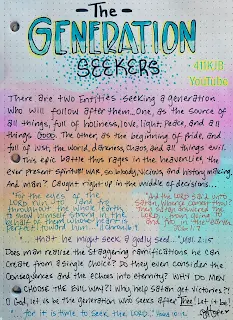 -The-
GENERATION
SEEKERS
411KJB
YouTube
There are two Entities seeking a generation
who will follow after them... One, as the source of
all things, full of holiness, love, light, Peace, and all
things Good. The other, as the beginning of Pride, and
full of lust, the world, darkness, Chaos, and all things evil.
This epic battle thus rages in the heavenlies, the
ever present spiritual WAR, so bloody, vicious, and history making,
And man? Caught right up in the middle of decisions...
For the eyes of the
LORD run to and fro
throughout the whole earth,
to shew himself strong in the
behalf of them whose heart is
perfect toward him. II Chronicles
And the LORD said unto
Satan, Whence comest thou?
LORD,
From going to and fro
in the earth
that he might seek a godly seed..." Mal. 2:15
Does man realize the staggering ramifications he can
Create from a single choice? Do they even consider the
Consequences and the echoes into eternity? WHY DO MEN
CHOOSE THE EVIL WAY?! Why help Satan get victories??
O God, let us be the generation who seeks after Thee! Let it be!
for it is time to seek the LORD..